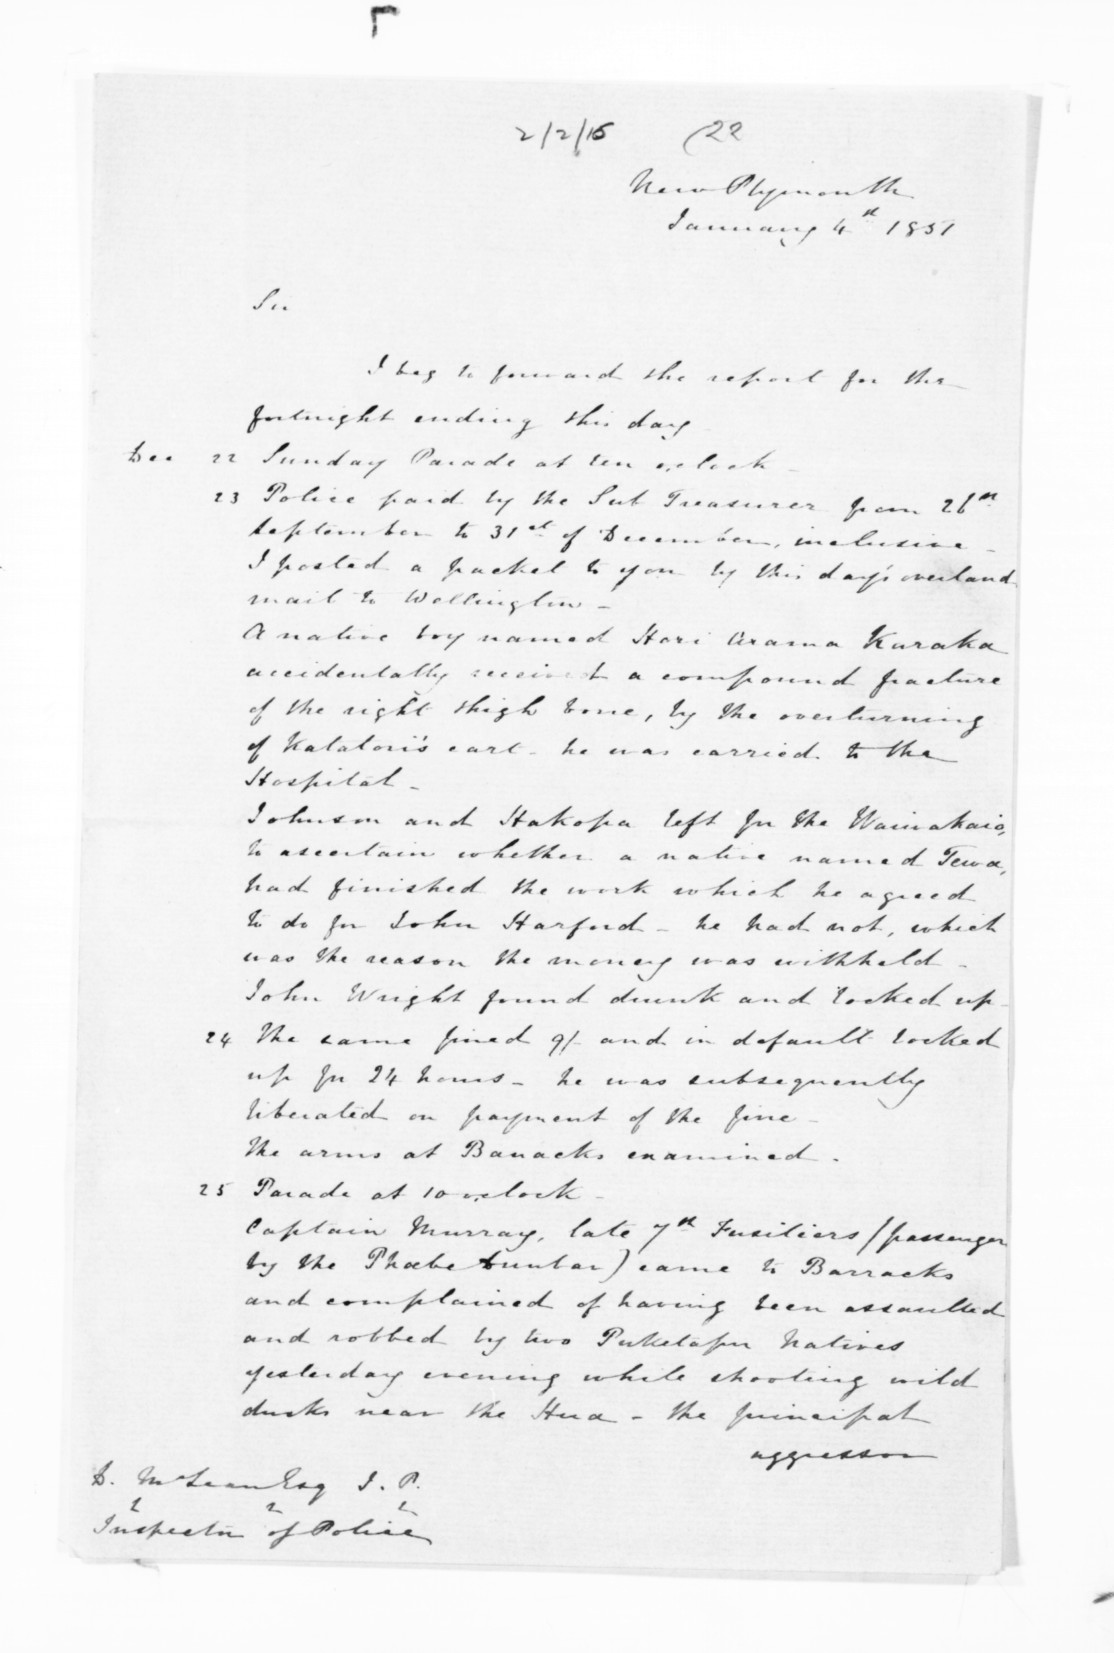 2/2/15 (22
New Plymouth
January 4th 1851
Sir
I beg to forward the report for the
fortnight ending this day
Dec 22 Sunday Parade at ten o,clock -
23 Police paid by the Sub Treasurer from 26th
September to 31st of December, inclusive -
I posted a packet to you by this day's overland
mail to Wellington -
A native boy named Hori Arama Karaka
accidentally received a compound fracture
of the right thigh bone, by the overturning
of Katatori's cart - he was carried to the
Hospital -
Johnson and Hakopa left for the Waiwakaio,
to ascertain whether a native named Tewa,
had finished the work which he agreed
to do for John Harford - he had not, which
was the reason the money was withheld -
John Wright found drunk and locked up -
24 the same fined 9/- and in default locked
up for 24 hours - he was subsequently
liberated on payment of the fine -
the arms at Barracks examined.
25 Parade at 10 o,clock -
Captain Murray, late 7th Fusiliers (passenger
by the Phœbe Dunbar) came to Barracks
and complained of having been assaulted
and robbed by two Puketapu Natives
yesterday evening while shooting wild
ducks near the Hua - the principal
aggressor
D. McLean Esq J. P.
2 2 2
Inspector of Police